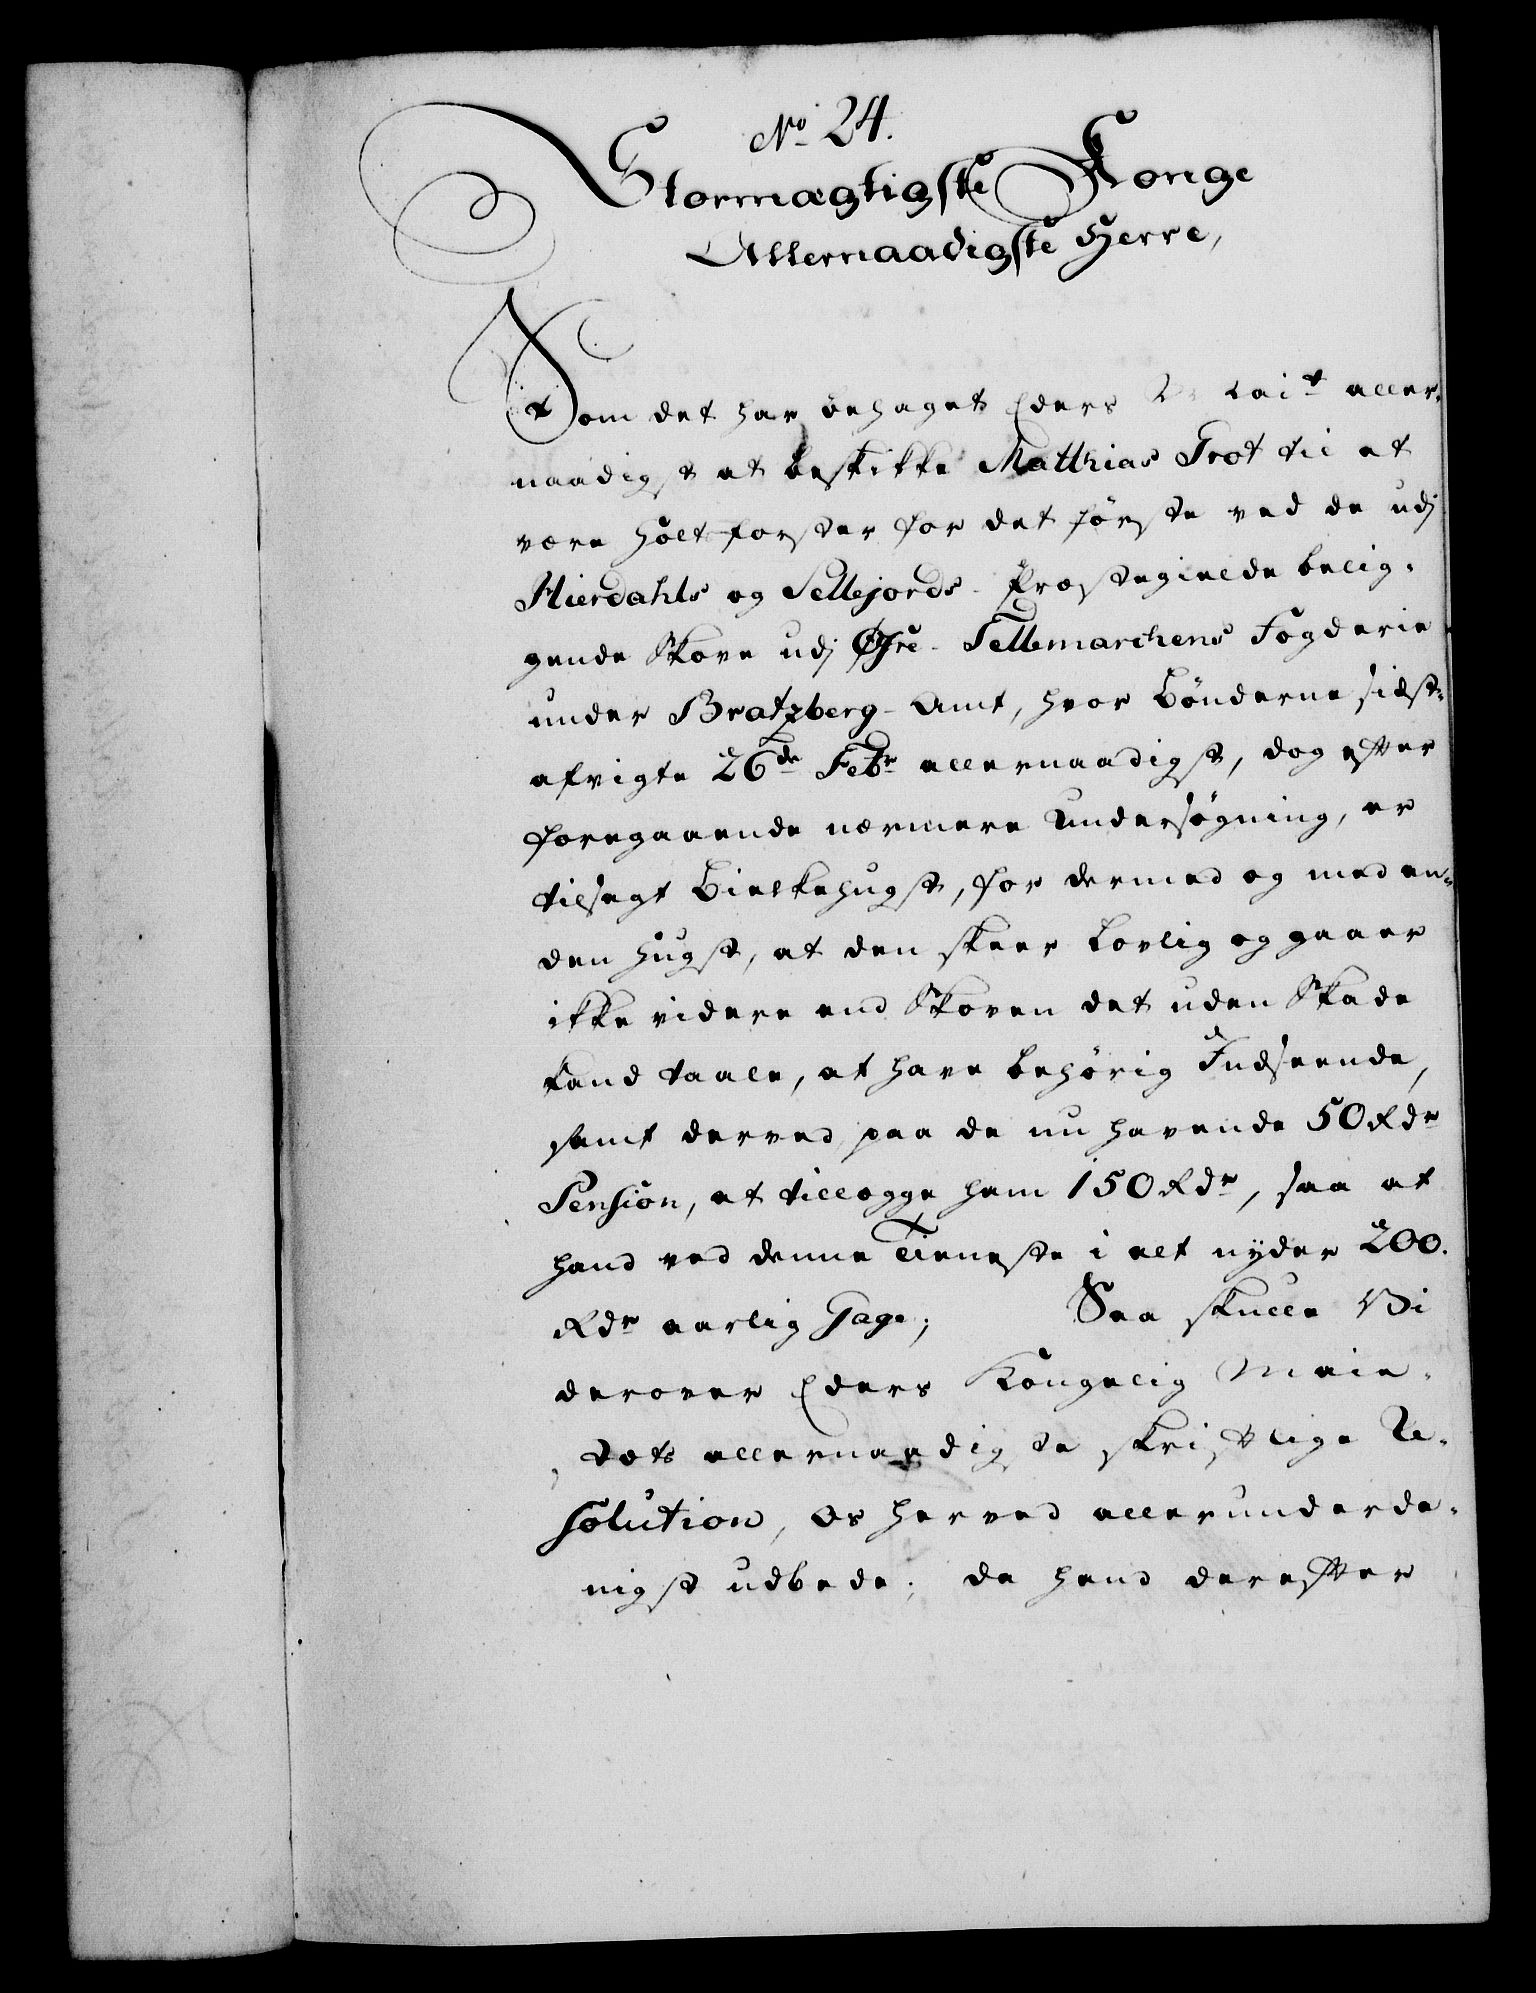 No 24.
Stormægtigste Konge
Allernaadigste Herre,
Som det har behaget Eders Mait aller-
naadigst at beskikke Matthias Trot til at
være Holtforster for det første ved de udj
Hierdahls og Sellejords- Præstegielde belig-
gende Skove udj Øfre- Tellemarchens Fogderie
under Bratzberg- Amt, hvor Bönderne sidst-
afvigte 26de Febr allernaadigst, dog efter
foregaaende nærmere Undersøgning, er
tilsagt Bielkehugst, for dermed og med an-
den hugst, at den skeer lovlig og gaaer
ikke videre end Skoven det uden Skade
kand taale, at have behørig Indseende,
samt derved paa de nu havende 50 Rdr
Pension, at tillægge ham 150 Rdr, saa at
hand ved denne Tieneste i alt nyder 200.
Rdr aarlig Gage; Saa skulle Vi
derover Eders Kongelig Maie-
tets allernaadigste skriftlige Re-
solution, os herved allerunderda-
nigst udbede; da hand derefter